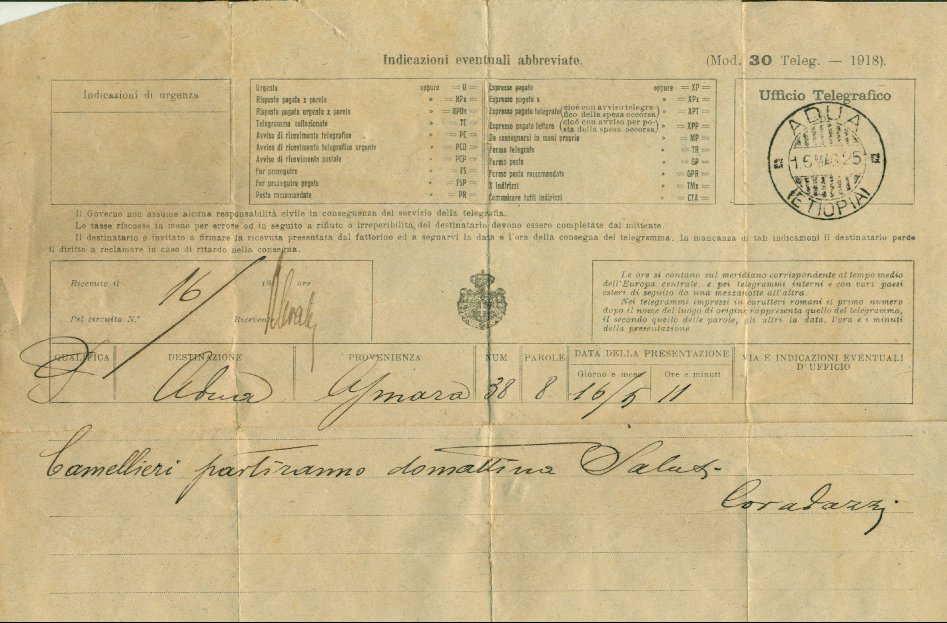 Indicazioni eventuali abbreviate.
(Mod. 30 Teleg. — 1918).
Indicazioni di urgenza
Urgente oppure = D =
Risposta pagata x parole » = RPx =
Risposta pagata urgente x parole » = RPDx =
Telegramma collazionato » = TC =
Avviso di ricevimento telegrafico » = PC =
Avviso di ricevimento telegrafico urgente » = PCD =
Avviso di ricevimento postale » = PCP =
Far proseguire » = FS =
Far proseguire pagato » = FSP =
Posta raccomandata » = PR =
Espresso pagato oppure = XP =
Espresso pagato x » = XPx =
Espresso pagato telegrafo (cioè con avviso telegrafico della spesa occorsa) » = XPT =
Espresso pagato lettera (cioè con avviso per posta della spesa occorsa) » = XPP =
Da consegnarsi in mani proprie » = MP =
Fermo telegrafo » = TR =
Fermo posta » = GP =
Fermo posta raccomandato » = GPR =
X indirizzi » = TMx =
Comunicare tutti indirizzi » = CTA =
Ufficio Telegrafico
ADUA
(ETIOPIA)
Il Governo non assume alcuna responsabilità civile in conseguenza del servizio della telegrafia.
Le tasse riscosse in meno per errore od in seguito a rifiuto o irreperibilità del destinatario devono essere completate dal mittente.
Il destinatario è invitato a firmare la ricevuta presentata dal fattorino ed a segnarvi la data e l'ora della consegna del telegramma. In mancanza di tali indicazioni il destinatario perde
il diritto a reclamare in caso di ritardo della consegna.
Ricevuto il 16 19 ore
Pel circuito N.° Ricevente
Le ore si contano sul meridiano corrispondente al tempo medio
dell'Europa centrale e pei telegrammi interni e con vari paesi
esteri di seguito da una mezzanotte all'altra.
Nei telegrammi impressi in caratteri romani il primo numero
dopo il nome del luogo di origine rappresenta quello del telegramma,
il secondo quello delle parole, gli altri la data, l'ora e i minuti
della presentazione
QUALIFICA DESTINAZIONE PROVENIENZA NUM PAROLE DATA DELLA PRESENTAZIONE VIA E INDICAZIONI EVENTUALI
D'UFFICIO
Giorno e mese Ore e minuti
Adua Asmara 38 8 16/5 11
Camellieri partiranno domattina Saluti
Coradazzi